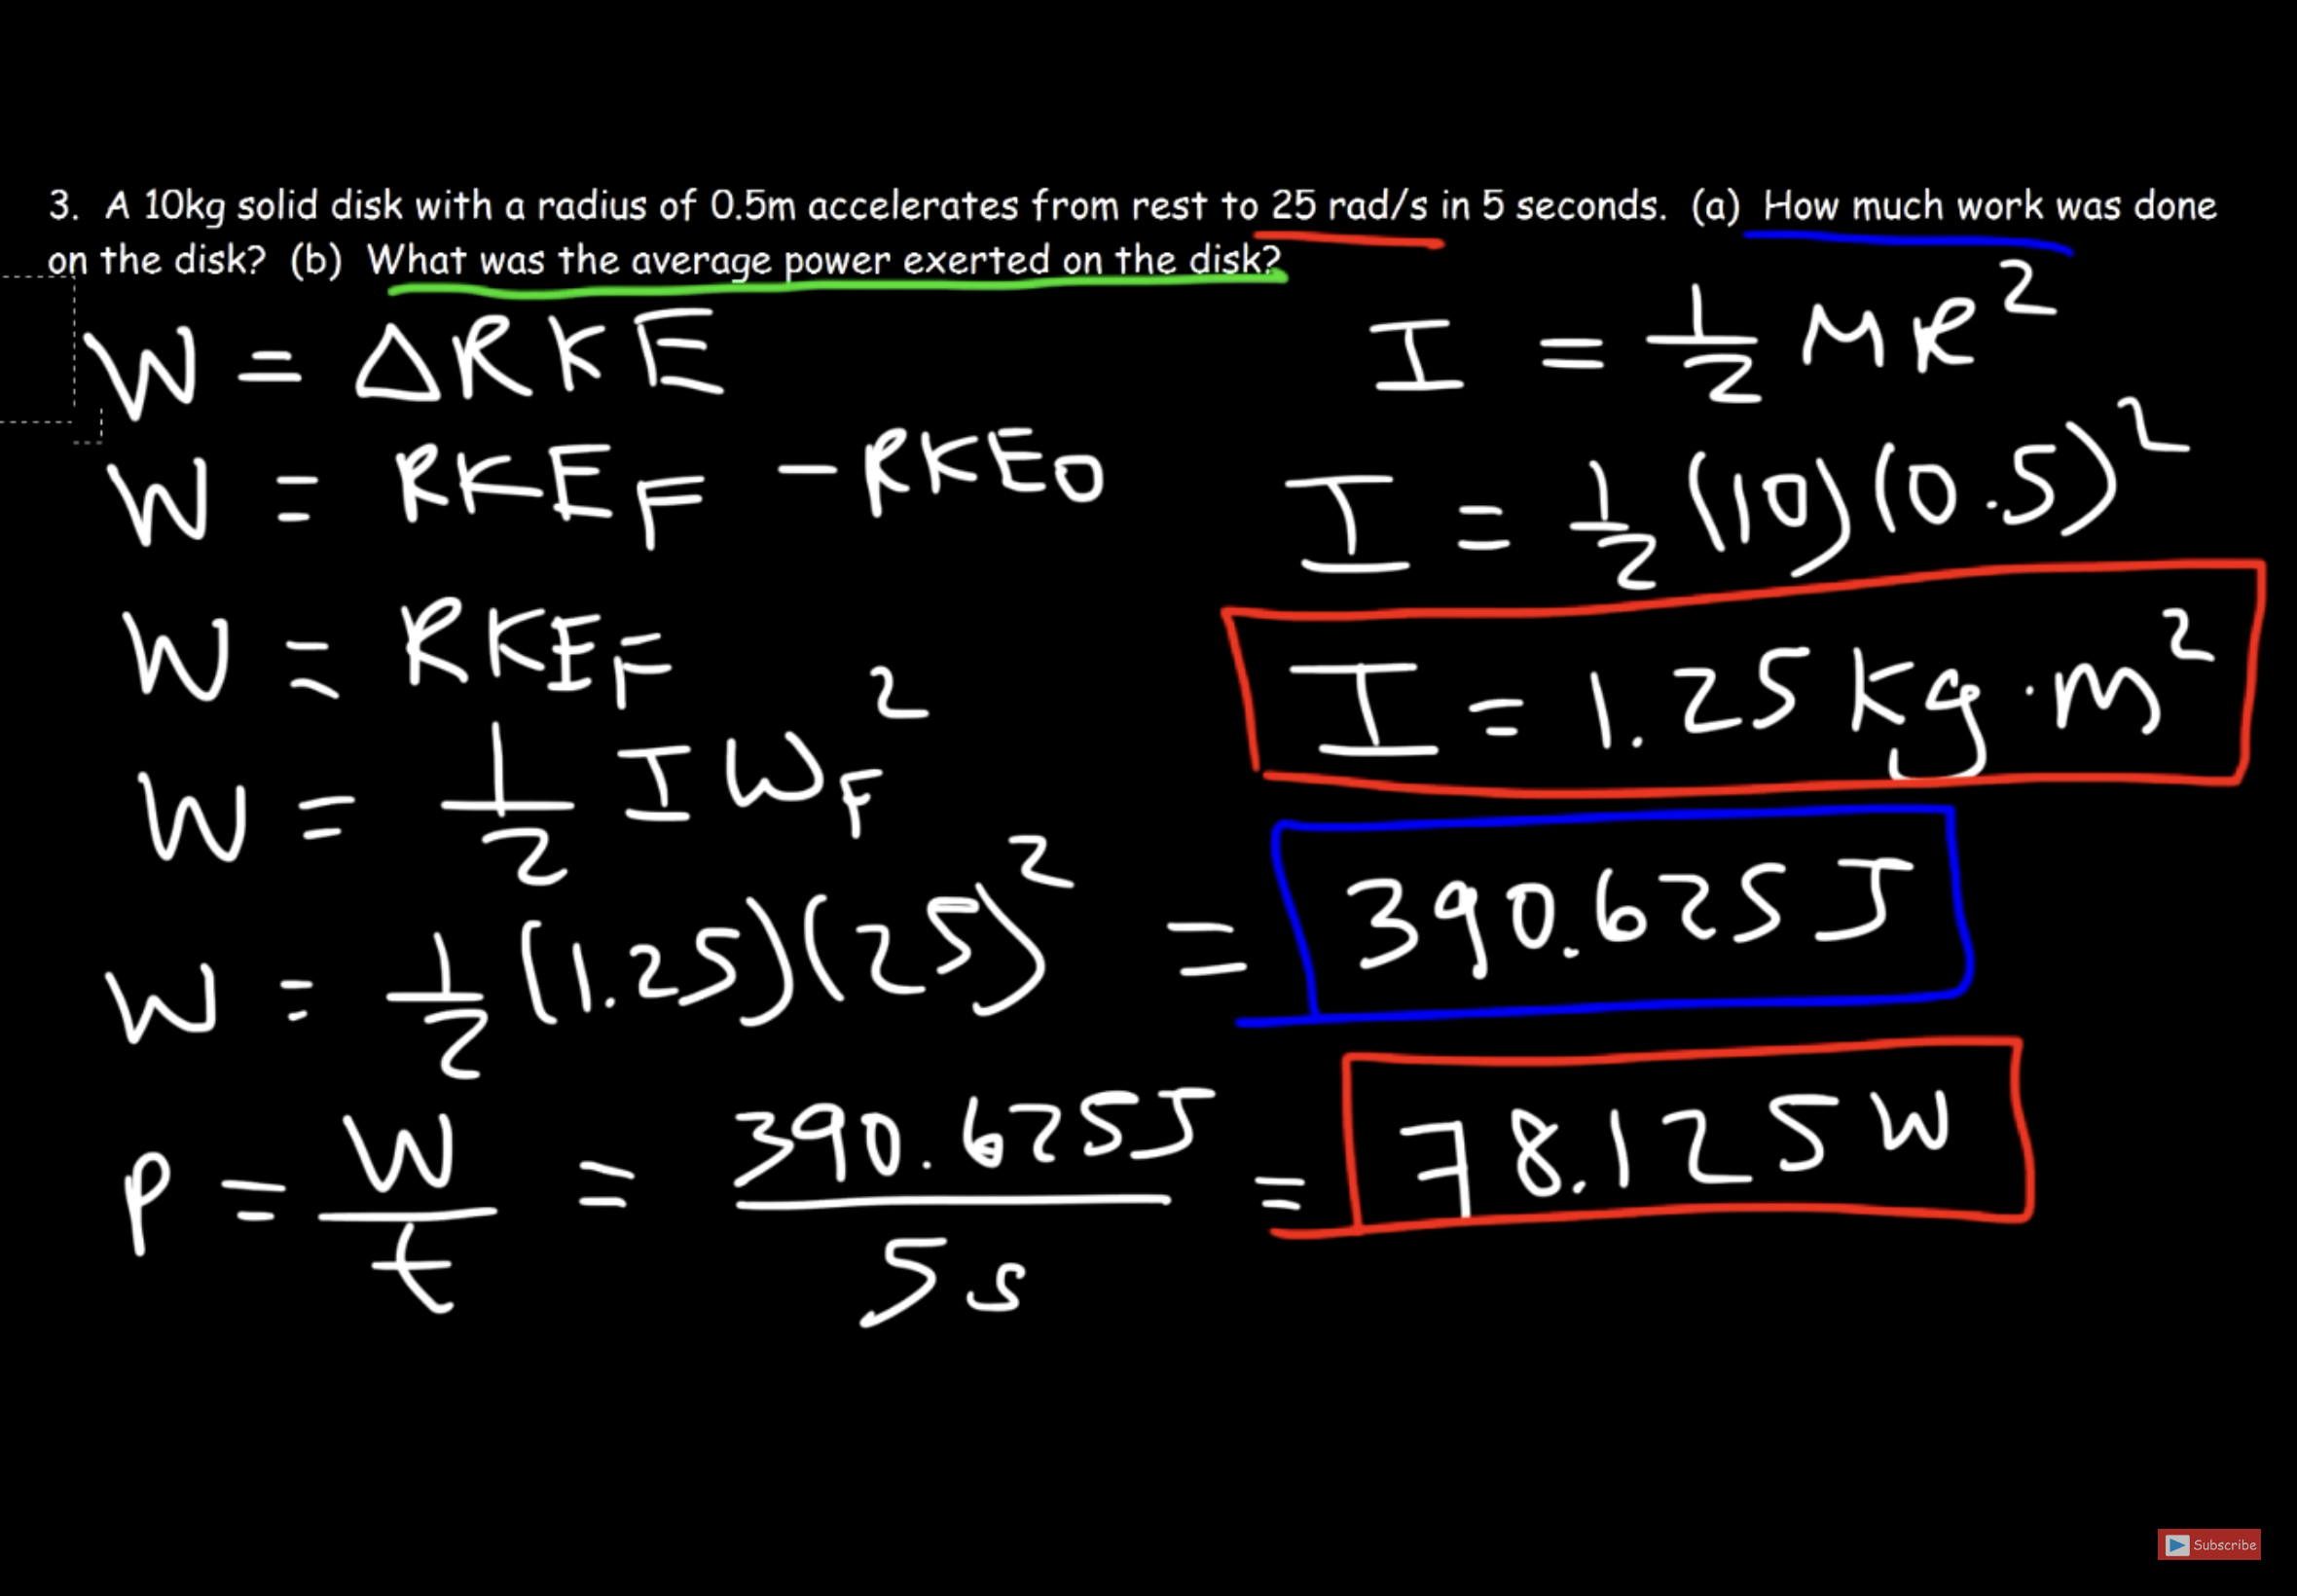 3. A 10kg solid disk with a radius of 0.5m accelerates from rest to 25 rad/s in 5 seconds. (a) How much work was done
on the disk? (b) What was the average power exerted on the disk?
W = ΔRKE
W = RKE_F - RKE_0
W = RKE_F
W = 1/2 I ω_F²
W = 1/2 (1.25)(25)² = 390.625 J
P = W/t = 390.625 J / 5 s = 78.125 W
I = 1/2 MR²
I = 1/2 (10)(0.5)²
I = 1.25 kg·m²
Subscribe